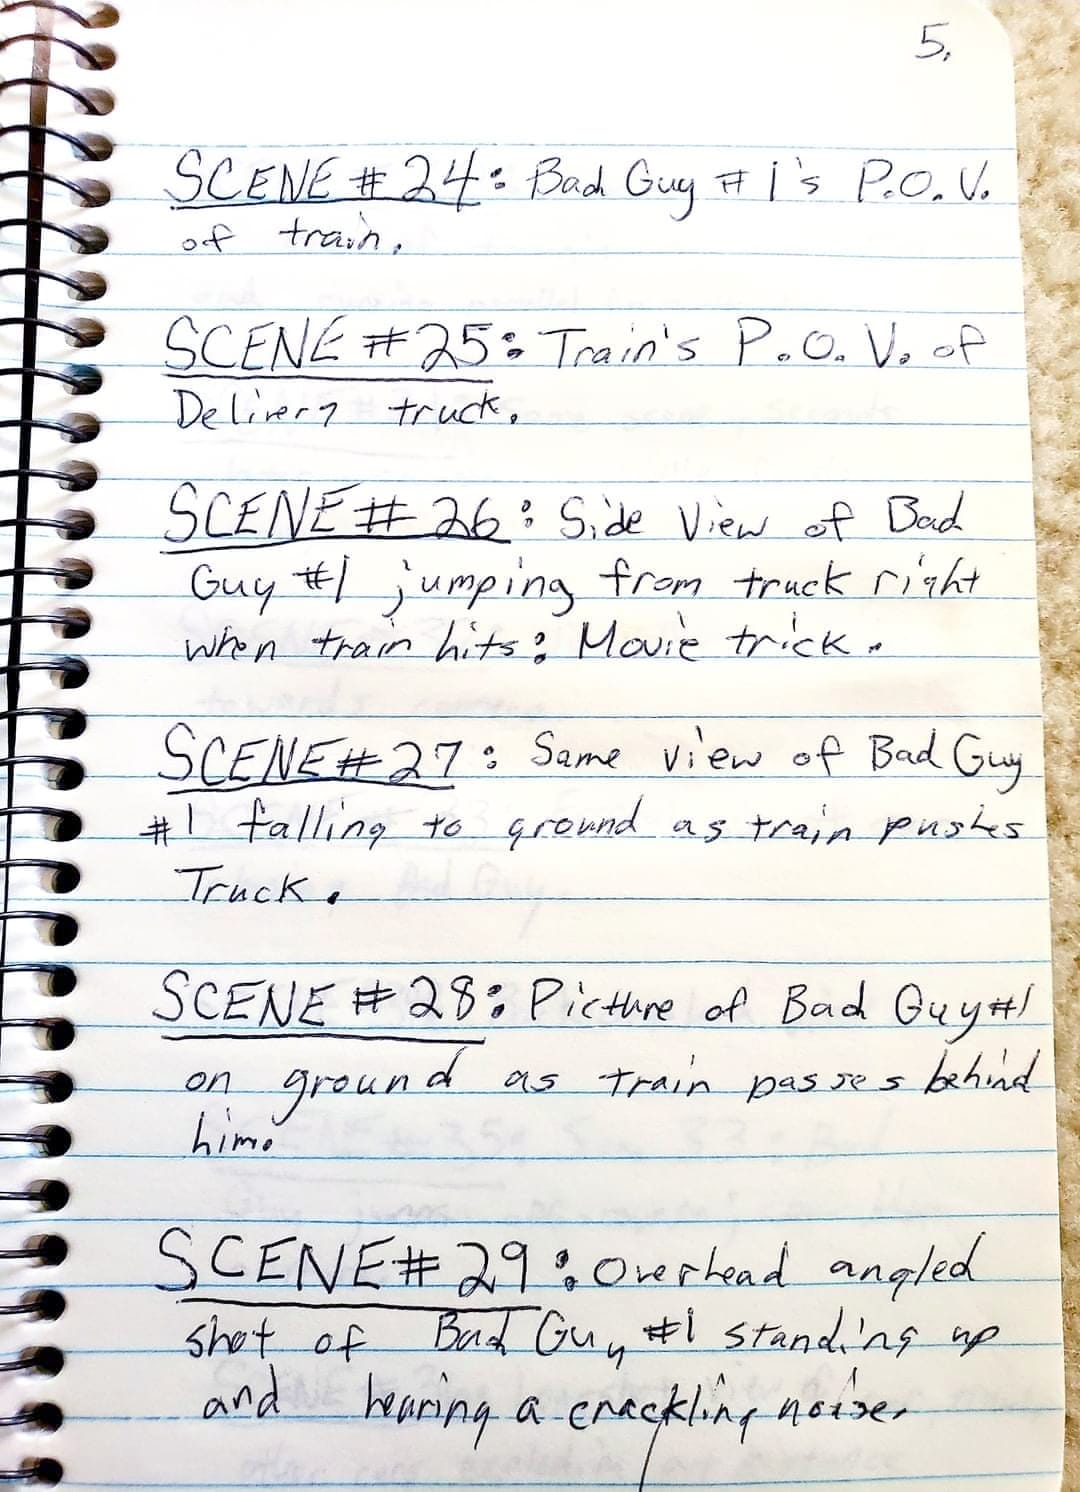 5.
SCENE # 24: Bad Guy # 1's P.O.V.
of train.
SCENE #25: Train's P.O.V. of
Delivery truck.
SCENE # 26: Side View of Bad
Guy #1 jumping from truck right
when train hits: Movie trick.
SCENE# 27: Same view of Bad Guy
#1 falling to ground as train pushes
Truck.
SCENE # 28: Picture of Bad Guy #1
on ground as train passes behind
him.
SCENE# 29: Overhead angled
shot of Bad Guy #1 standing up
and hearing a crackling noise.